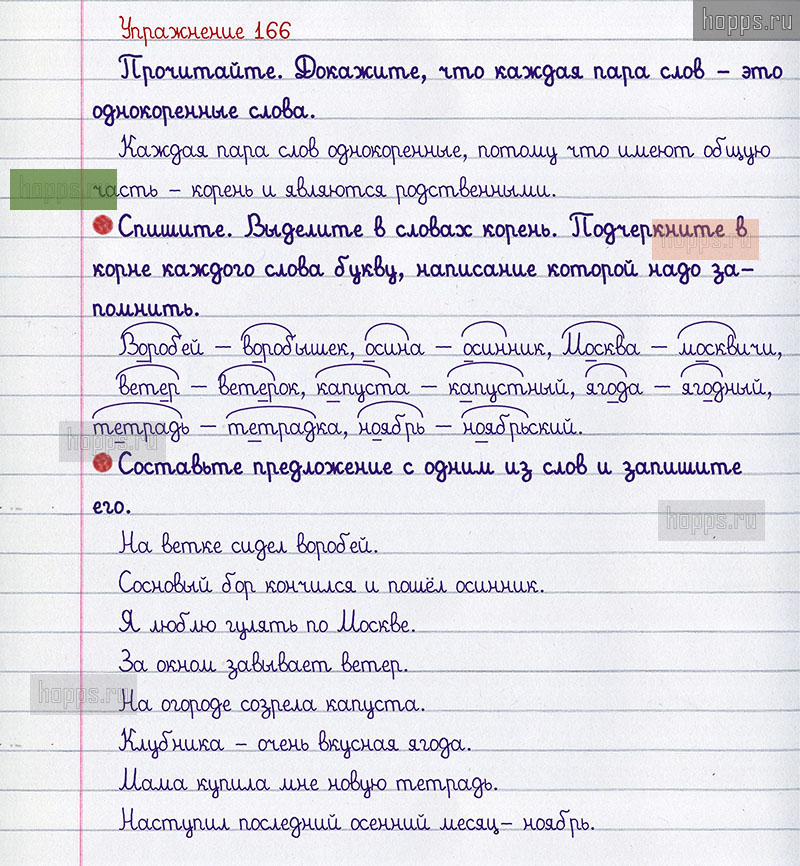 hopps.ru
Упражнение 166
Прочитайте. Докажите, что каждая пара слов – это
однокоренные слова.
Каждая пара слов однокоренные, потому что имеют общую
hopps.ru
часть – корень и являются родственными.
Спишите. Выделите в словах корень. Подчеркните в
hopps.ru
корне каждого слова букву, написание которой надо за-
помнить.
Воробей – воробышек, осина – осинник, Москва – москвичи,
ветер – ветерок, капуста – капустный, ягода – ягодный,
тетрадь – тетрадка, ноябрь – ноябрьский.
hopps.ru
Составьте предложение с одним из слов и запишите
его.
hopps.ru
На ветке сидел воробей.
Сосновый бор кончился и пошёл осинник.
Я люблю гулять по Москве.
За окном завывает ветер.
hopps.ru
На огороде созрела капуста.
Клубника – очень вкусная ягода.
Мама купила мне новую тетрадь.
Наступил последний осенний месяц– ноябрь.